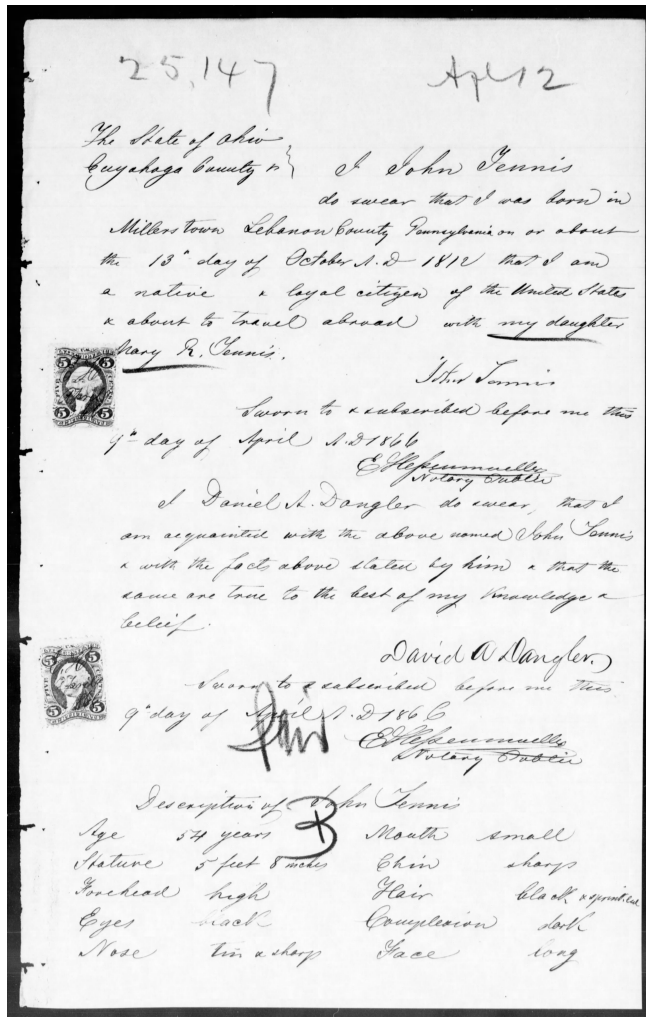 25,147 Apl 12
The State of Ohio
Cuyahoga County ss } I John Tennis
do swear that I was born in
Millerstown Lebanon County Pennsylvania on or about
the 13" day of October A.D 1812 that I am
a native & loyal citizen of the United States
& about to travel abroad with my daughter
Mary R. Tennis.
John Tennis
Sworn to & subscribed before me this
9" day of April A.D 1866
Notary Public
I Daniel A. Dangler do swear, that I
am acquainted with the above named John Tennis
& with the facts above stated by him & that the
same are true to the best of my Knowledge &
belief.
David A Dangler.
Sworn to & subscribed before me this
9" day of April A.D 1866
Notary Public
Description of John Tennis
Age 54 years Mouth small
Stature 5 feet 8 inches Chin sharp
Forehead high Hair black &
Eyes black Complexion dark
Nose tin & sharp Face long